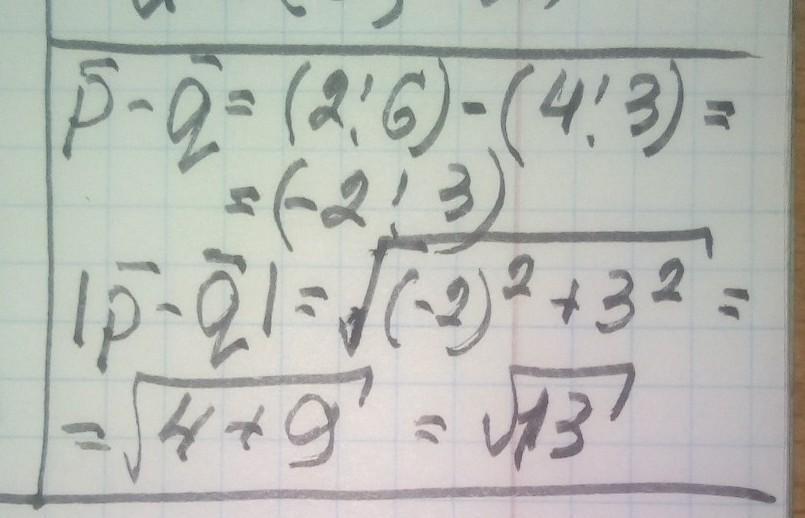 p̄ - q̄ = (2; 6) - (4; 3) =
= (-2; 3)
|p̄ - q̄| = √((-2)² + 3²) =
= √(4 + 9) = √13